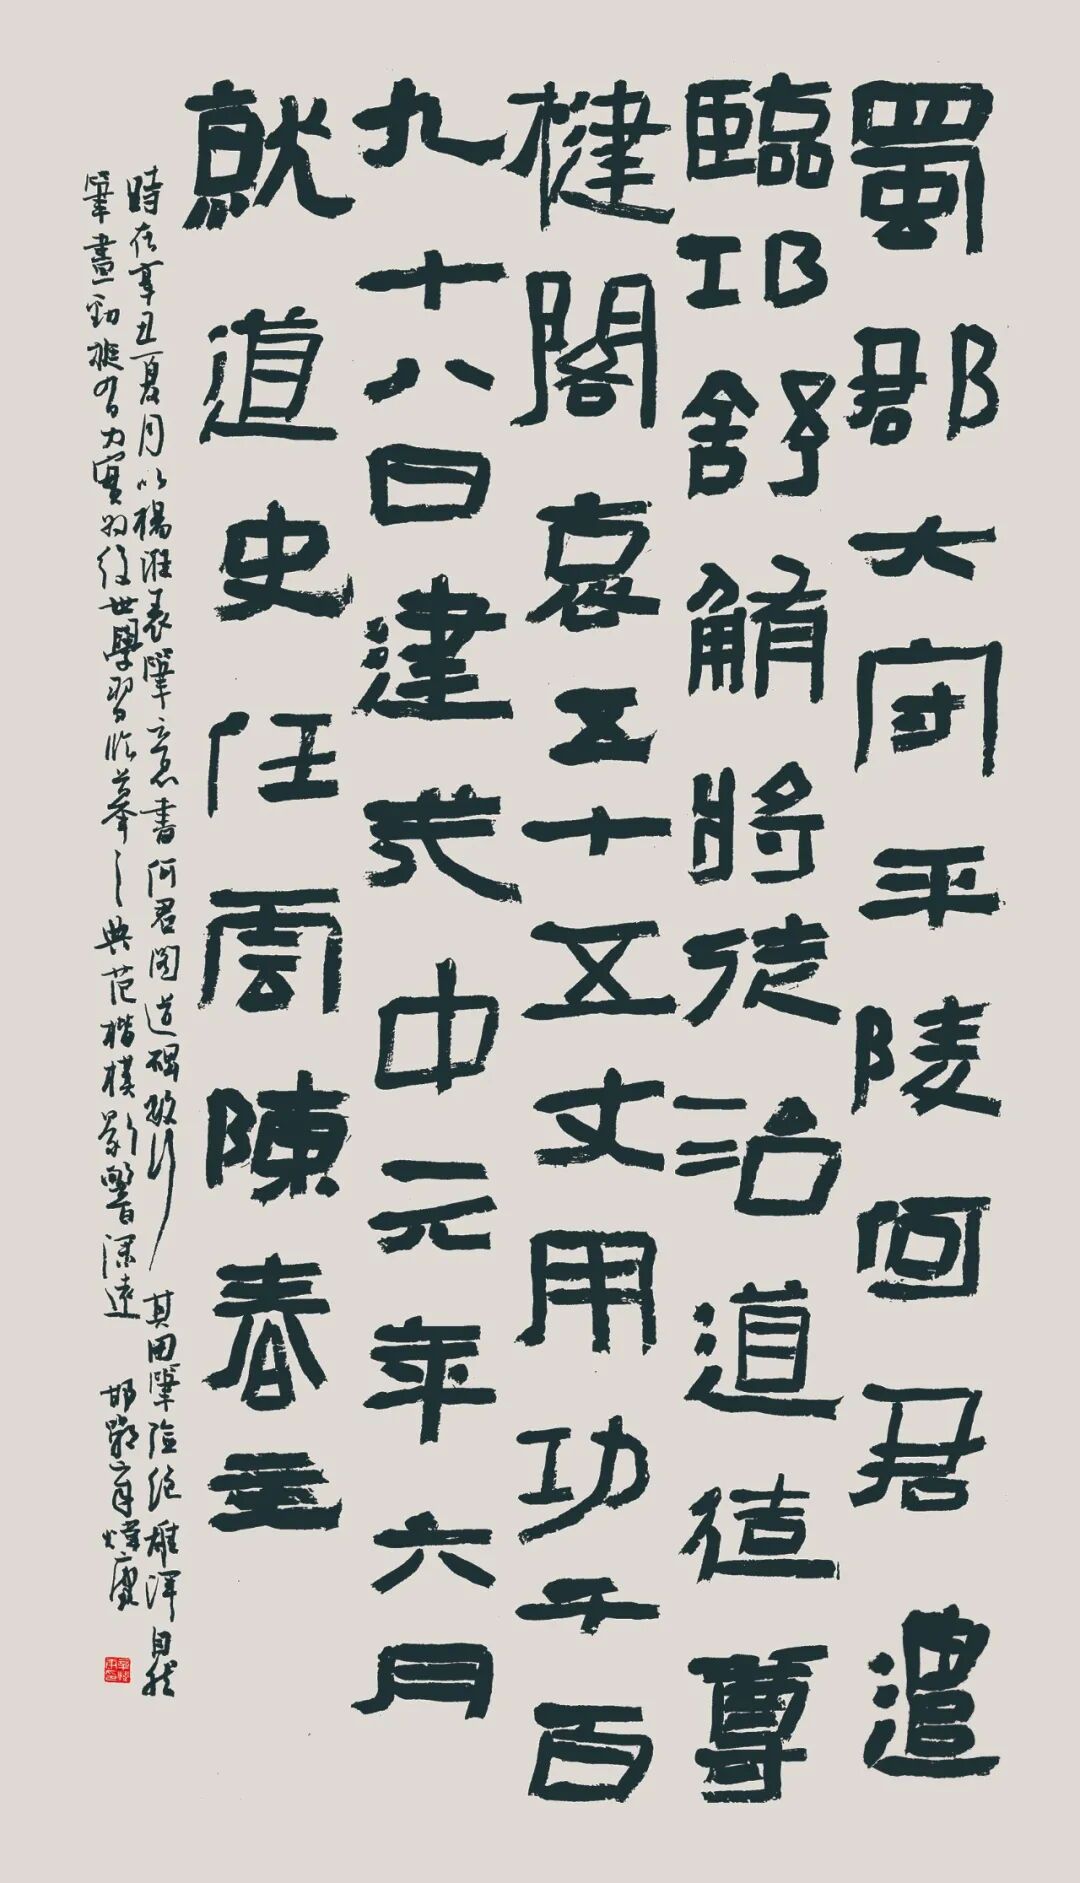 蜀郡大守平陵何君遣
臨邛舒鮪將徒治道造尊
楗閣袤五十五丈用功千百
九十八日建武中元年六月
就道史任雲陳春主
時在辛丑夏月以楊淮表筆意書何君閣道碑 其用筆險絕雄渾自然
筆畫勁挺有力實為後世學習臨摹之典范楷模影響深遠 邯鄲 煒康